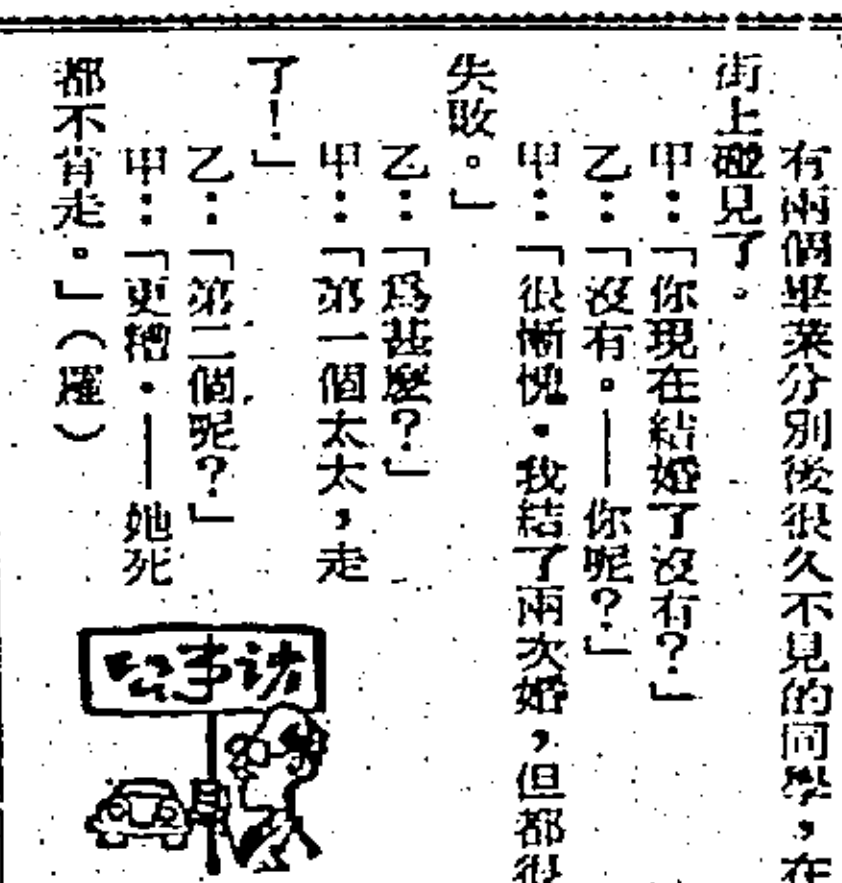 有兩個畢業分別後很久不見的同學，在
街上碰見了。
甲：「你現在結婚了沒有？」
乙：「沒有。——你呢？」
甲：「很慚愧，我結了兩次婚，但都很
失敗。」
乙：「爲甚麼？」
甲：「第一個太太，走
了！」
乙：「第二個呢？」
甲：「更糟。——她死
都不肯走。」（羅）